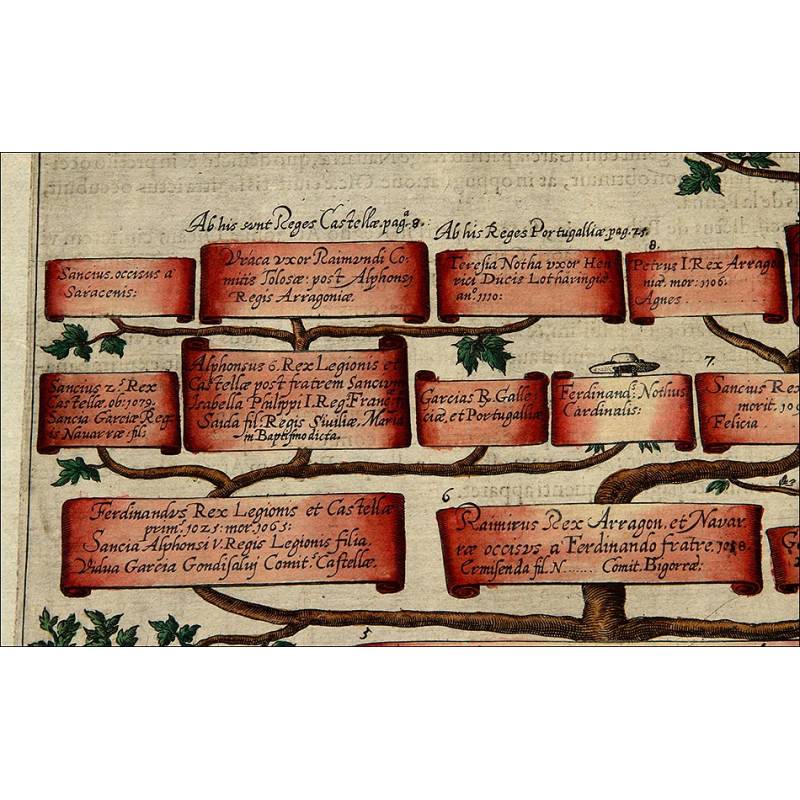 Ab his sunt Reges Castellæ. pagª 8.
Ab his Reges Portugalliæ. pag. 21.
Sancius. occisus a
Saracenis:
Vrāca vxor Raimundi Co-
mitis Tolosæ: post Alphonsi
Regis Arragoniæ.
Teresia Notha vxor Hen
rici Ducis Lotharingiæ
an.º 1110:
8.
Petrus I. Rex Arrago
niæ. mor: 1106.
Agnes.
Sancius 2.s Rex
Castellæ. ob: 1079.
Sancia Garciæ Reg
is Navarræ. fil:
Alphonsus 6. Rex Legionis et
Castellæ post fratrem Sancium
Isabella Philippi I. Reg: Franc
Saida fil: Regis Siuiliæ. Maria
in Baptismo dicta.
Garcias R. Galle
ciæ, et Portugalliæ
Ferdinand.s Nothus
Cardinalis:
7.
Sancius Rex
morit. 109
Felicia
Ferdinandvs Rex Legionis et Castellæ
prim.s 1025: mor: 1065:
Sancia Alphonsi V. Regis Legionis filia.
Vidua Garcia Gondisalui Comit.s Castellæ.
6
Raimirus Rex Arragon. et Navar
ræ occisus a Ferdinando fratre. 1058.
Ermisenda fil. N....... Comit. Bigorræ:
5